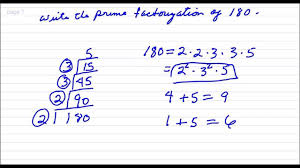 Write the prime factorization of 180.
5
3 15
3 45
2 90
2 180
180 = 2 · 2 · 3 · 3 · 5
= 2² · 3² · 5
4 + 5 = 9
1 + 5 = 6